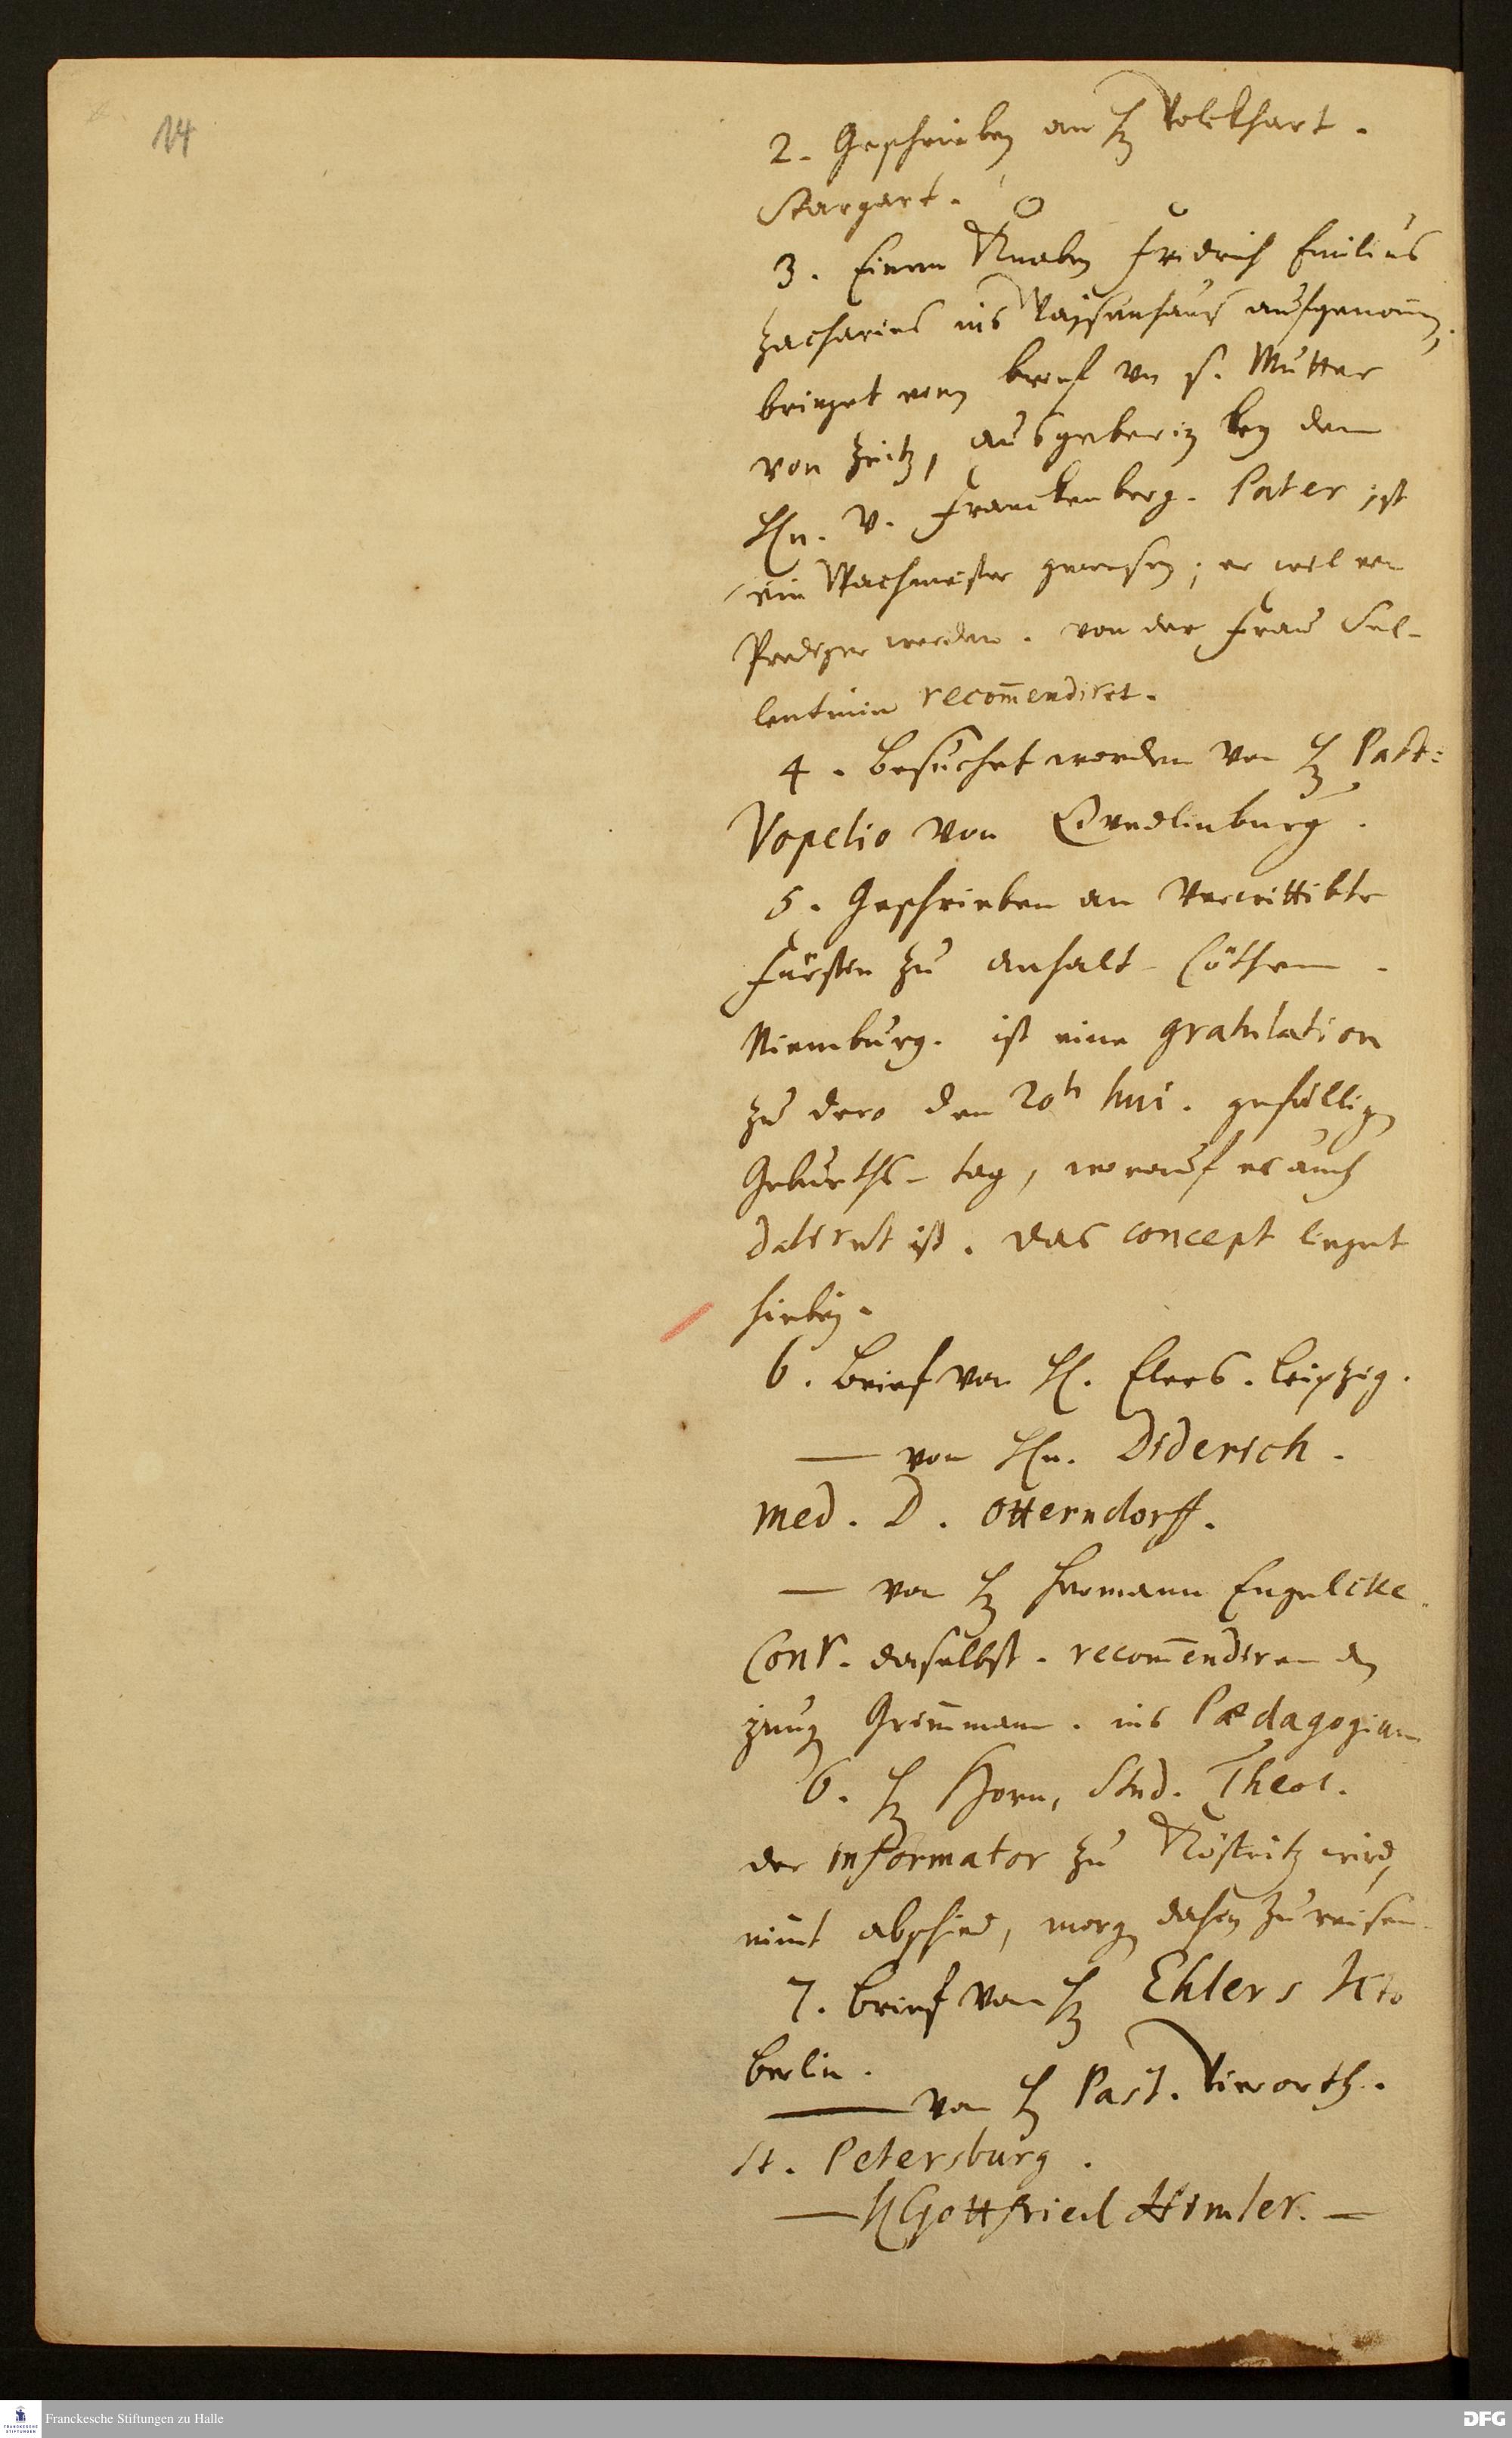 14
2. Geschrieben an H. Volckhart.
Stargart.
3. Einen Knaben Fridrich Emilius
Zacharias ins Waysenhaus aufgenom̄en,
bringet einen brief von s. Mutter
von Zeitz, ausgeberin bey dem
Hn. v. Franckenberg. Pater ist
ein Wachmeister gewesen; er wil ein
Prediger werden. von der Frau Sel-
lentinin recom̄endiret.
4. Besuchet worden von H. Past:
Vopelio von Qvedlinburg.
5. Geschrieben an Verwittibte
Fürstin zu Anhalt-Cöthen.
Niemburg. ist eine gratulation
zu dero den 20t hui. gefälligen
Geburths-tag, worauf es auch
datiret ist. Das concept lieget
hiebey.
6. Brief von H. Elers. Leipzig.
— von Hn. Diderich.
Med. D. Otterndorff.
— von H. Hermann Engelcke
ConR. daselbst. recom̄endiren den
jung Grim̄mann. ins Pædagogium
6. H. Horn, Stud. Theol.
der informator zu Köstritz wird,
nim̄t abschied, morgen dahin zu reisen.
7. Brief von H. Ehlers
Berlin.
— von H. Past. Vierorth.
St. Petersburg.
— H Gottfried Himler. —
Franckesche Stiftungen zu Halle
FRANCKESCHE STIFTUNGEN
DFG